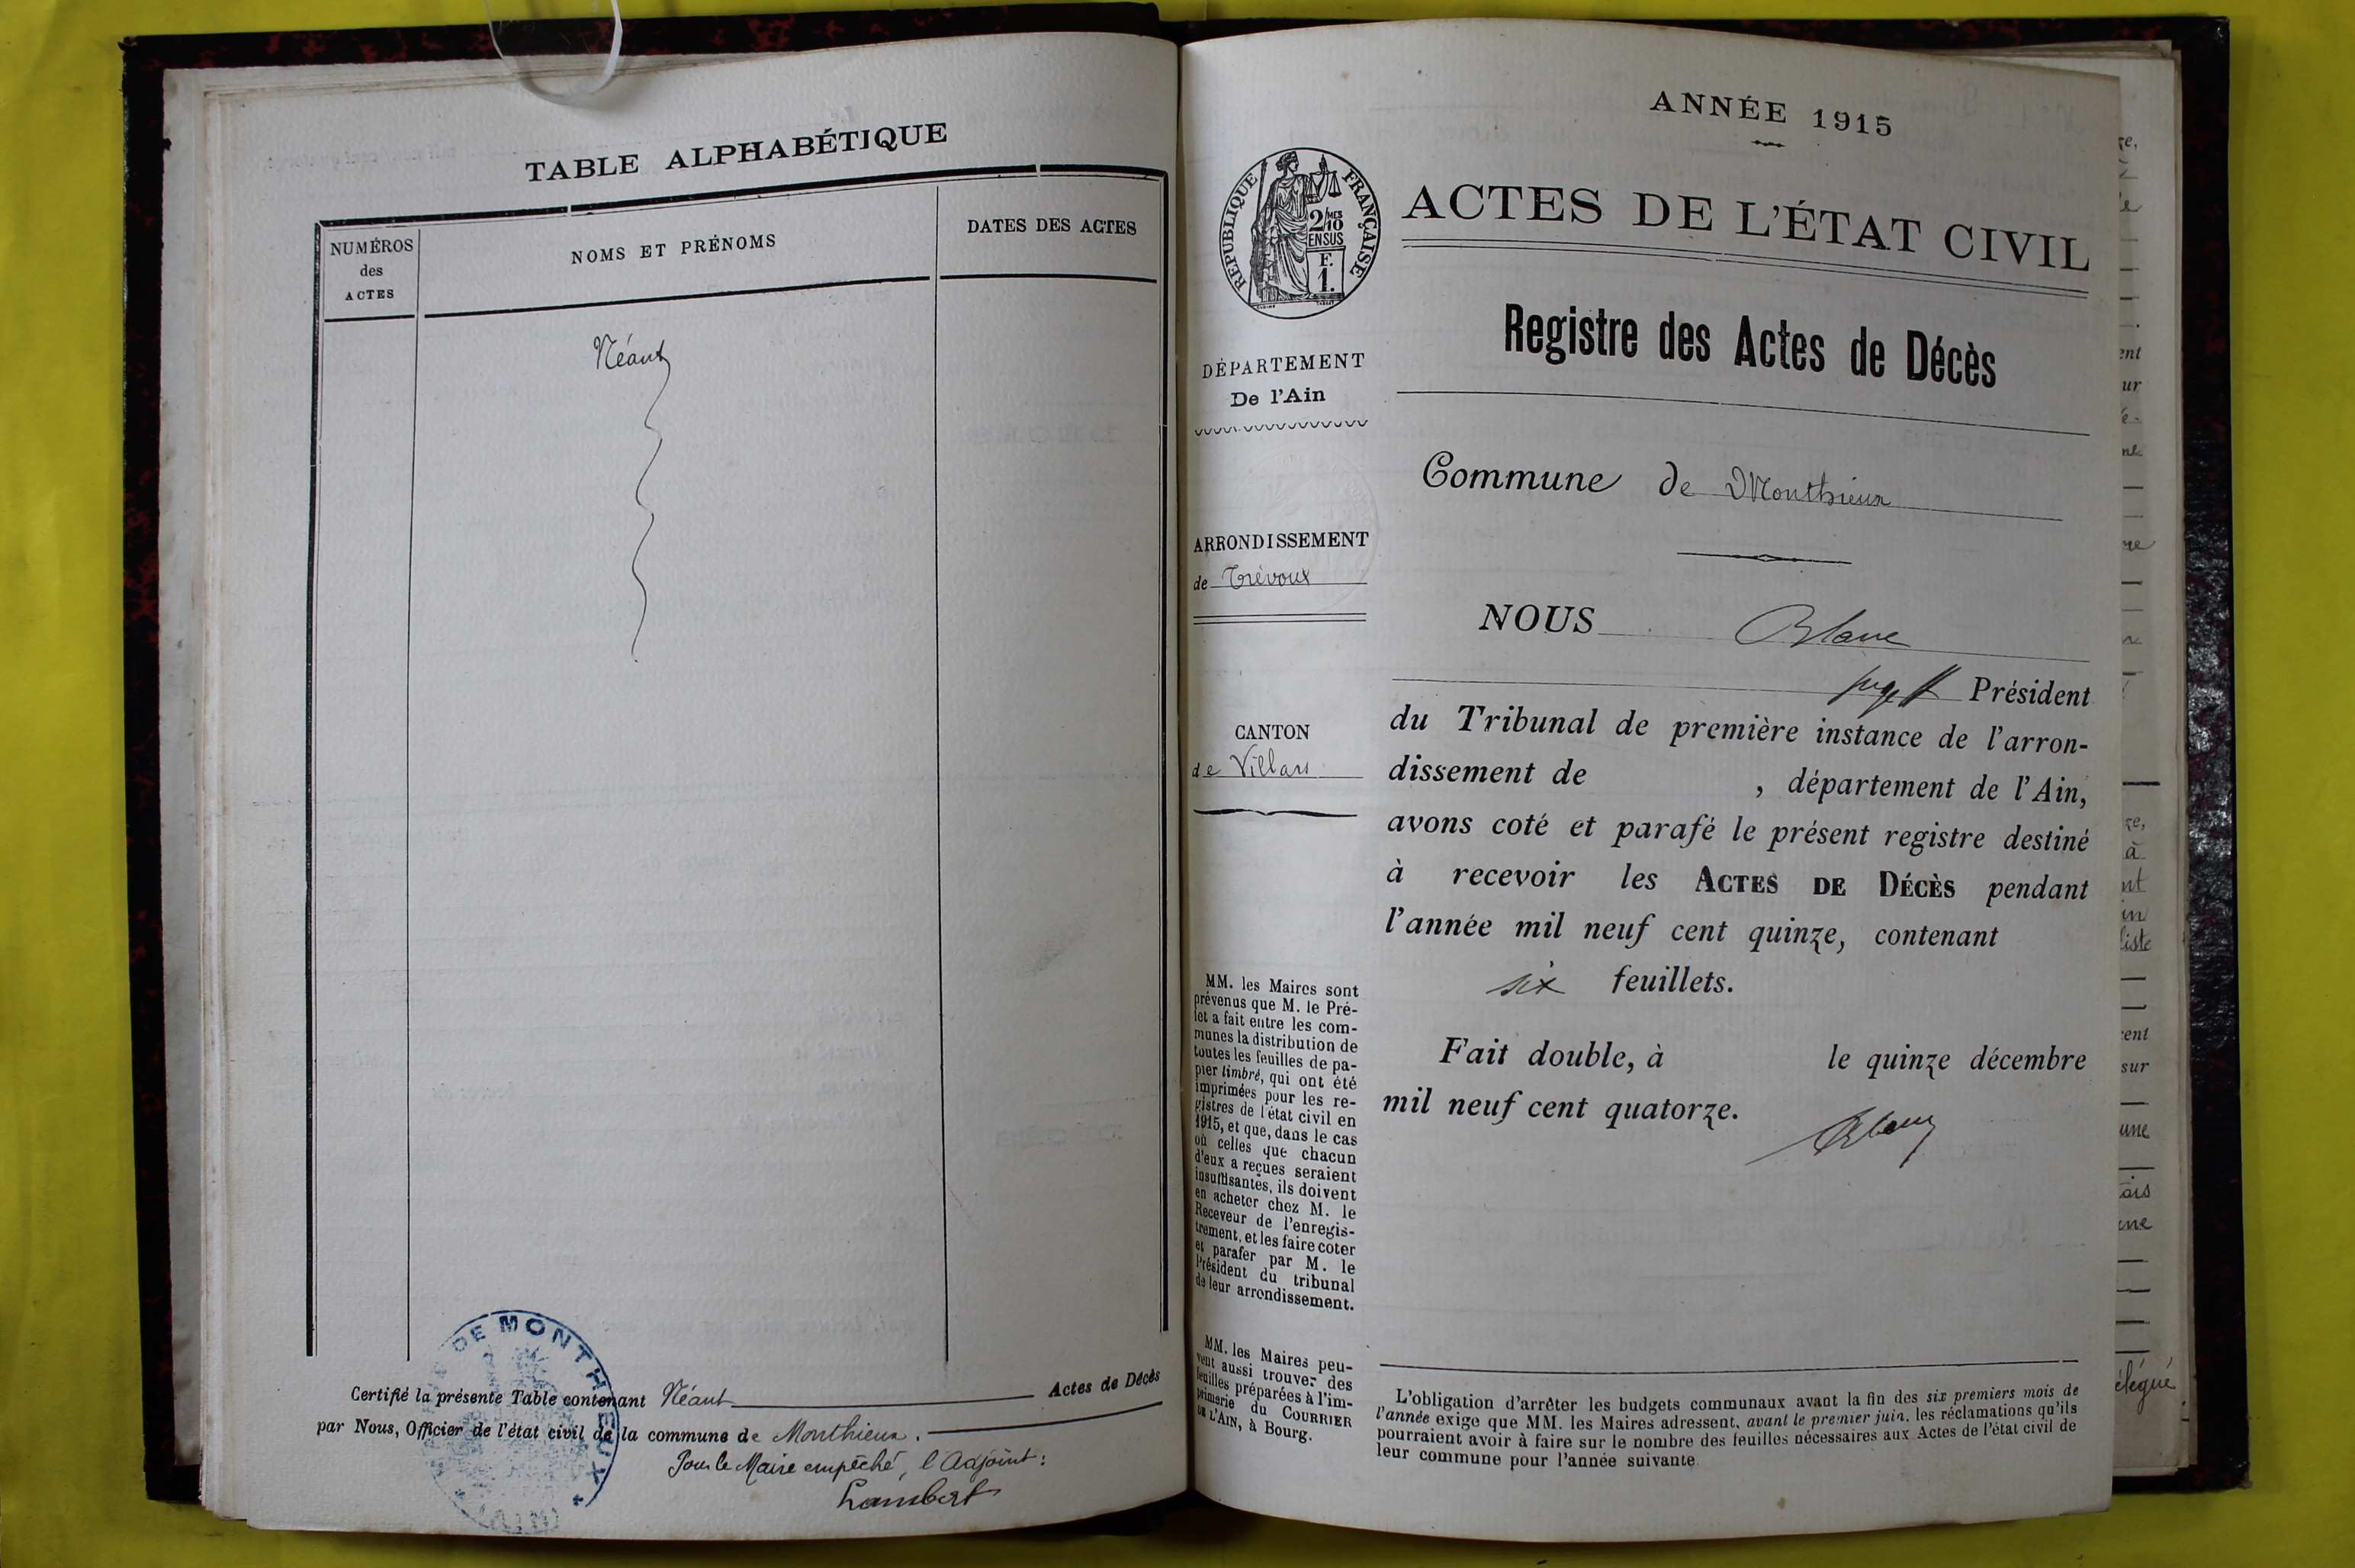 TABLE ALPHABÉTIQUE
NUMÉROS
des
ACTES
NOMS ET PRÉNOMS
DATES DES ACTES
Néant
DE MONTHIEUX
(AIN)
Certifié la présente Table contenant Néant Actes de Décès
par Nous, Officier de l'état civil de la commune de Monthieux.
Pour le Maire empêché, l'Adjoint:
Lambert
ANNÉE 1915
RÉPUBLIQUE FRANÇAISE
2/10 MES
EN SUS
F.
1.
ACTES DE L'ÉTAT CIVIL
Registre des Actes de Décès
DÉPARTEMENT
De l'Ain
Commune de Monthieux
ARRONDISSEMENT
de Trévoux
NOUS Blanc
juge ff Président
CANTON
de Villars
du Tribunal de première instance de l'arron-
dissement de , département de l'Ain,
avons coté et parafé le présent registre destiné
à recevoir les ACTES DE DÉCÈS pendant
l'année mil neuf cent quinze, contenant
six feuillets.
Fait double, à le quinze décembre
mil neuf cent quatorze.
Blanc
MM. les Maires sont
prévenus que M. le Pré-
fet a fait entre les com-
munes la distribution de
toutes les feuilles de pa-
pier timbré, qui ont été
imprimées pour les re-
gistres de l'état civil en
1915, et que, dans le cas
où celles que chacun
d'eux a reçues seraient
insuffisantes, ils doivent
en acheter chez M. le
Receveur de l'enregis-
trement, et les faire coter
et parafer par M. le
Président du tribunal
de leur arrondissement.
MM. les Maires peu-
vent aussi trouver des
feuilles préparées à l'im-
primerie du COURRIER
DE L'AIN, à Bourg.
L'obligation d'arrêter les budgets communaux avant la fin des six premiers mois de
l'année exige que MM. les Maires adressent, avant le premier juin, les réclamations qu'ils
pourraient avoir à faire sur le nombre des feuilles nécessaires aux Actes de l'état civil de
leur commune pour l'année suivante.